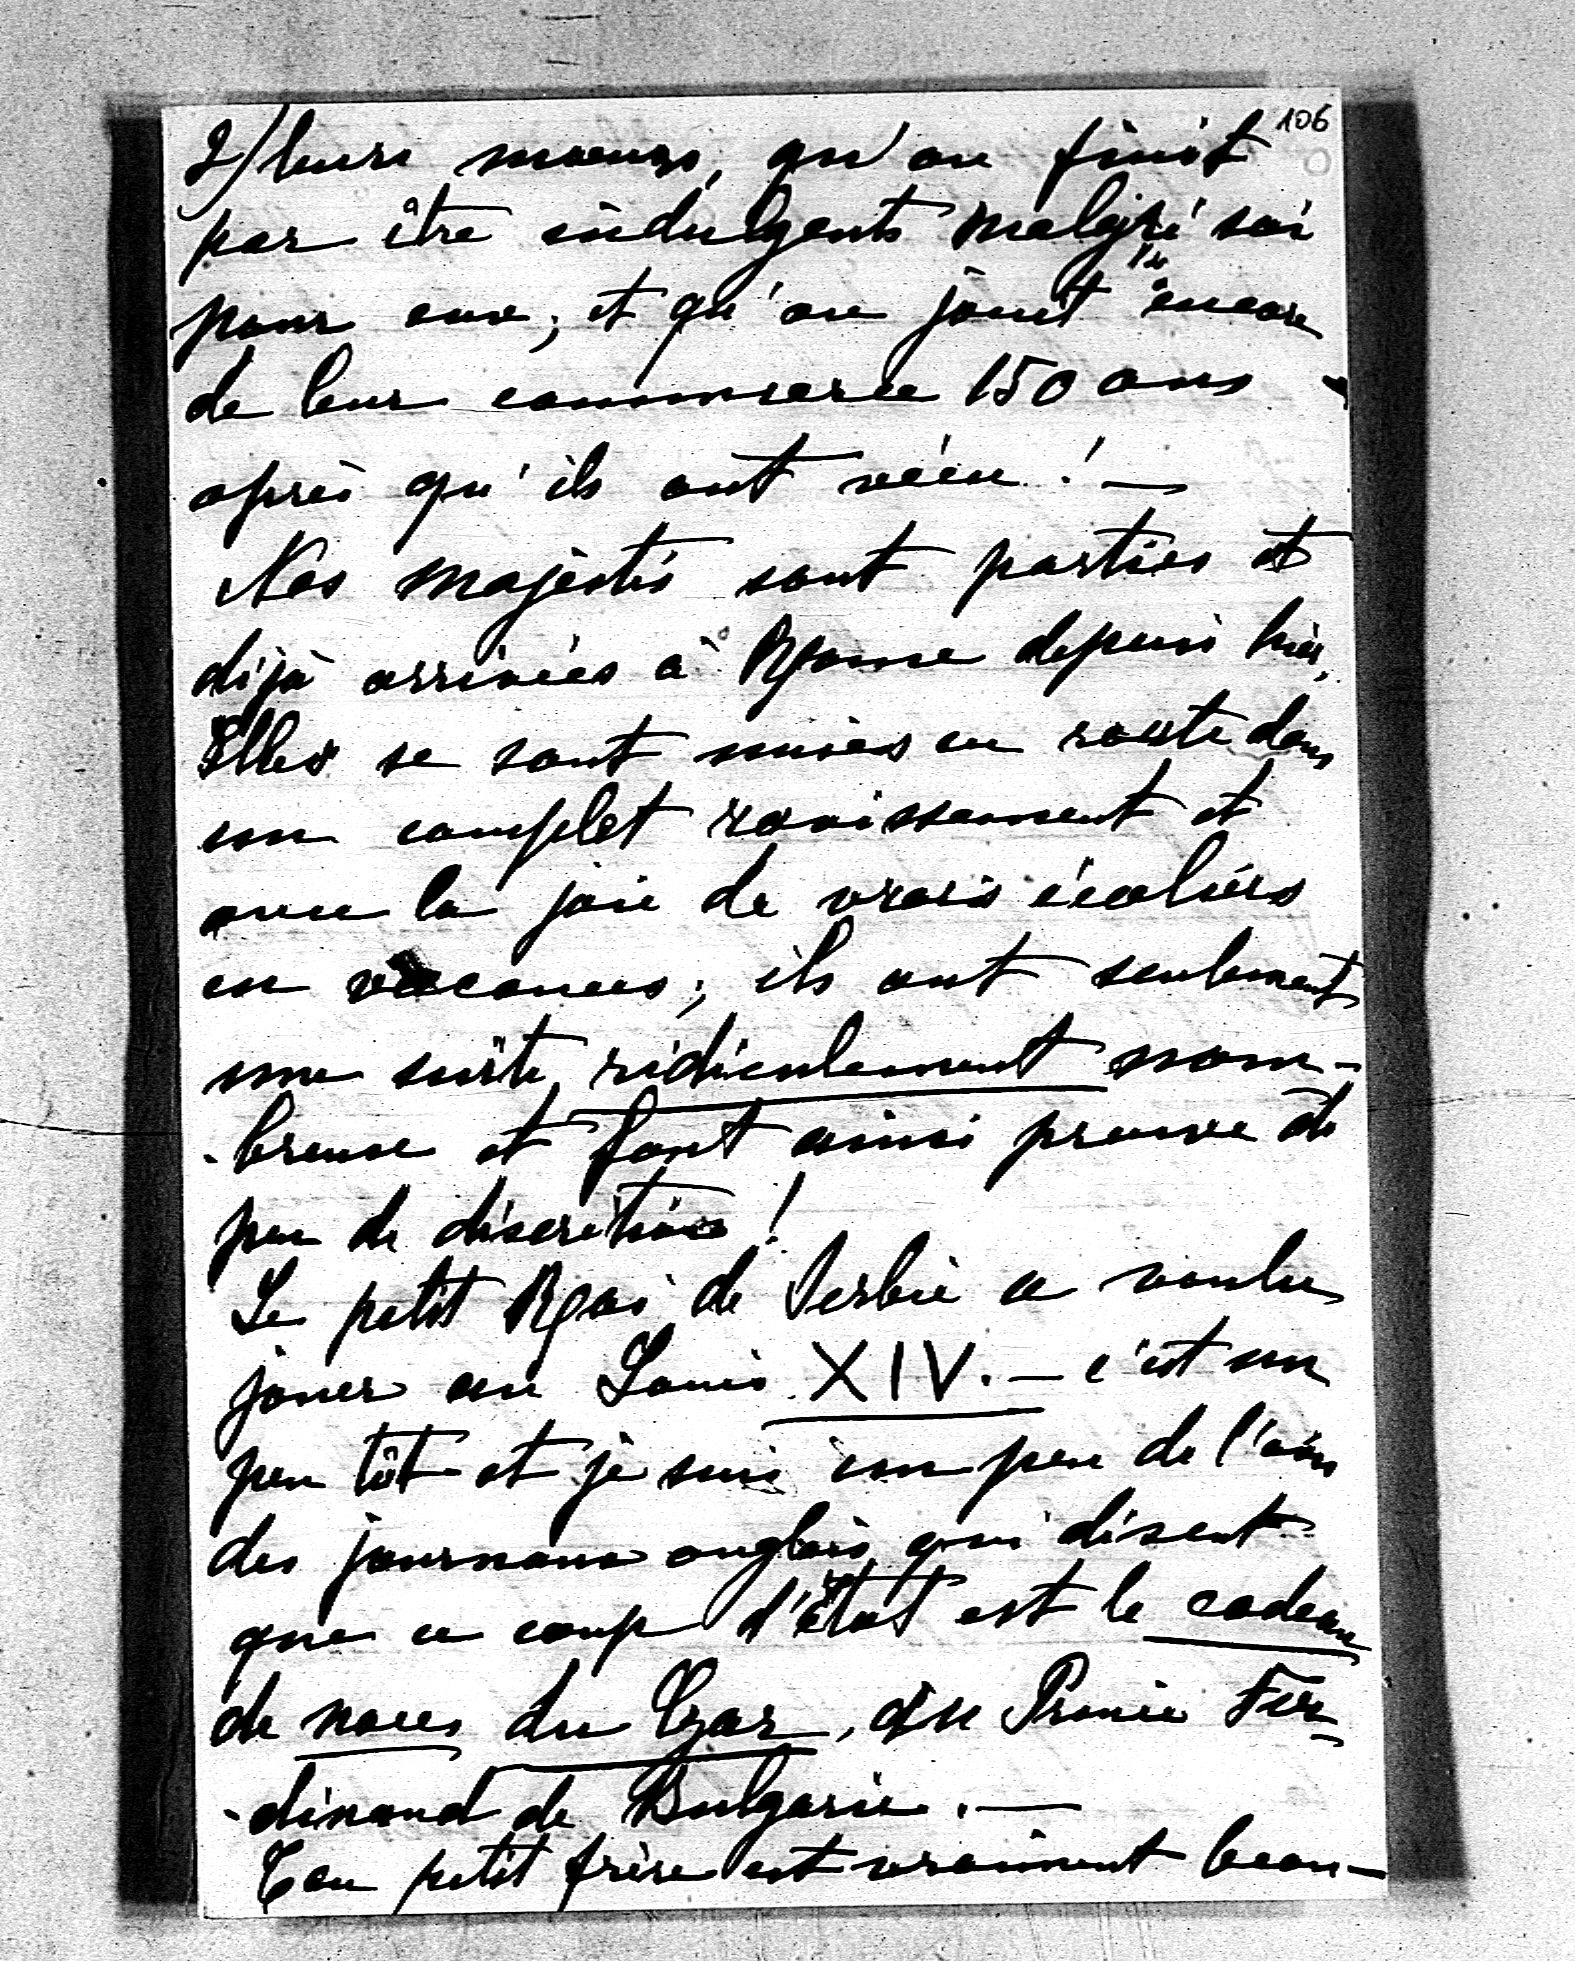 106
2/ leurs moeurs, qu'on finit
par être indulgents malgré soi
pour eux; et qu'on jouit encore
de leur commerce 150 ans
après qu'ils ont vécu! —
Nos majestés sont parties et
déjà arrivées à Rome depuis hier,
Elles se sont mises en route dans
un complet ravissement et
avec la joie de vrais écoliers
en vacances; ils ont seulement
une suite ridiculement nom-
-breuse et font ainsi preuve de
peu de discrétion!
Le petit Roi de Serbie a voulu
jouer au Louis XIV. — c'est un
peu tôt et je suis un peu de l'avis
des journaux anglais qui disent
que ce coup d'État est le cadeau
de noces du Czar, au Prince Fer-
-dinand de Bulgarie. —
Ton petit frère est vraiment beau-